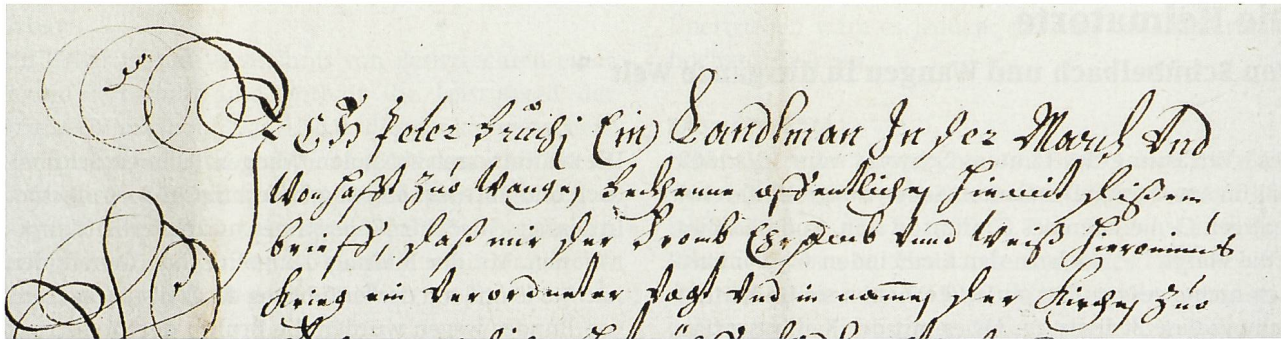 Ich Peter Bruhi Ein Landtman In der March Vnd
Wonhafft Zuo Wangen Bekhenne offentlichen hiemit disem
brieff das mir der From Ersam vnnd Weis Hieronimus
Krieg ein Verordneter Vogt Vnd in namen der Kirchen Zuo